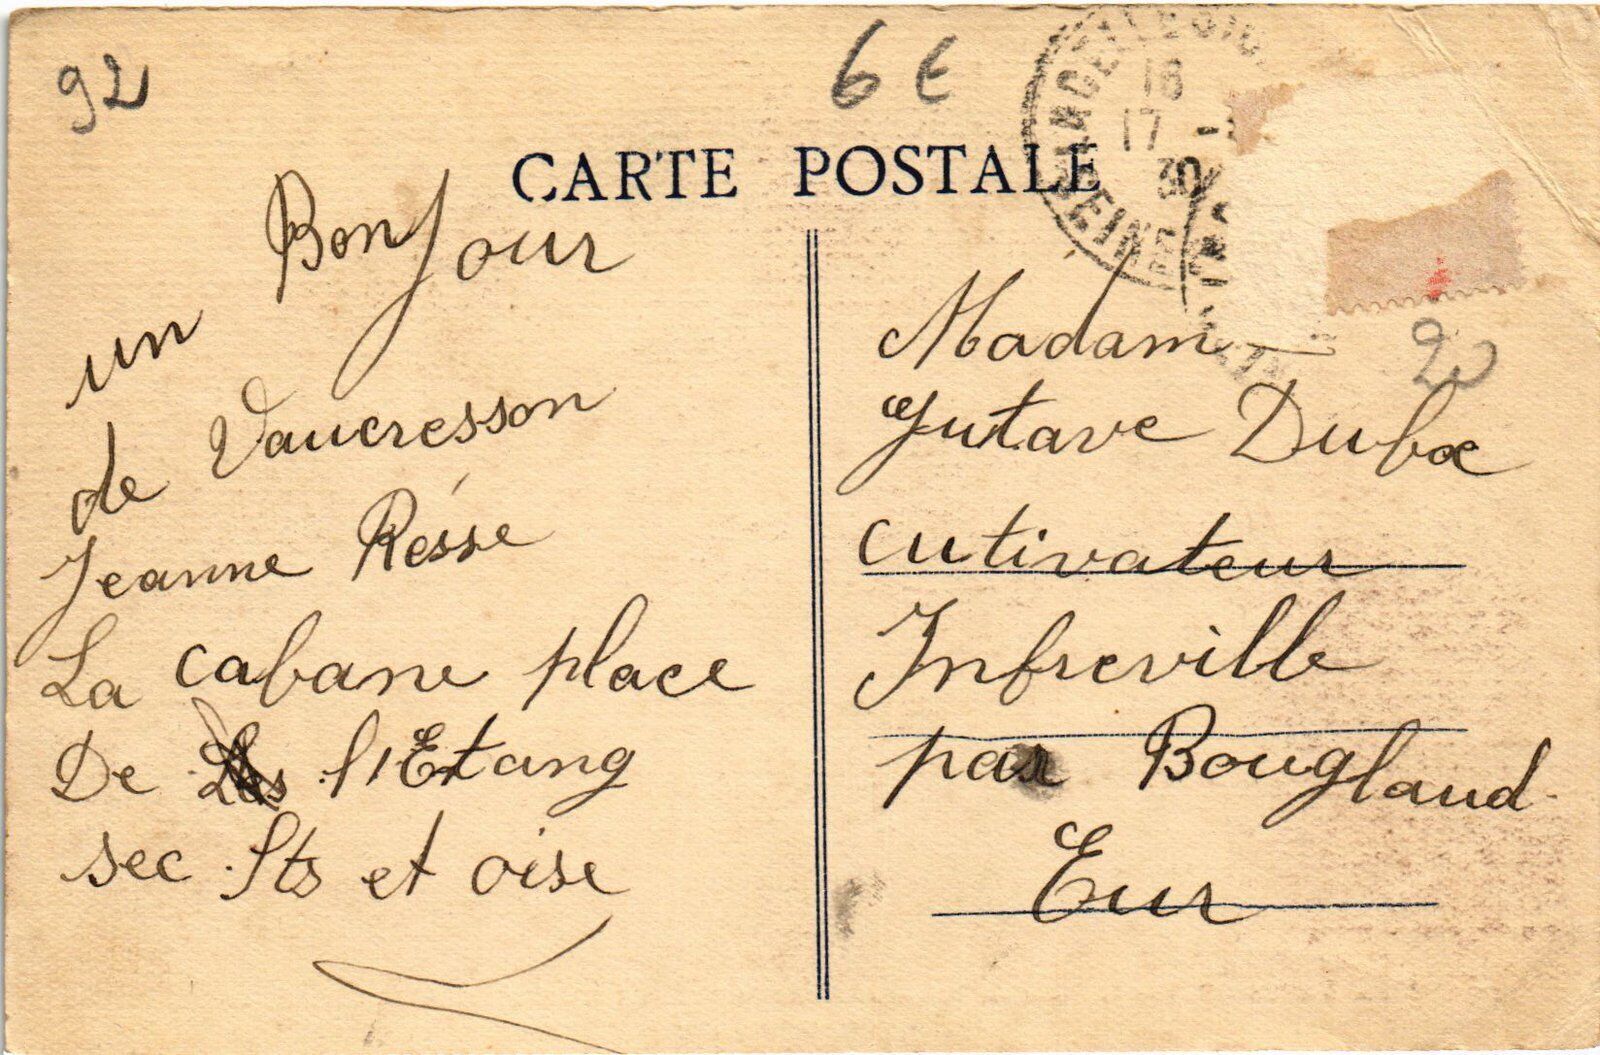 92
6 €
CARTE POSTALE
18
17 -
30
SEINE
un Bonjour
de Vaucresson
Jeanne Résse
La cabane place
De l'Etang
sec Sts et oise
Madam
Gutave Duboc
cutivateur
Infreville
par Bougland
Eur
92